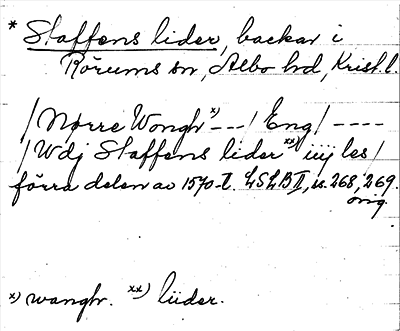 * Staffens lider, backar i
Rörums sn, Albo hd, Krist. l.
/Nørre Wongh x) ---/ Eng/ ----
/Wdj Staffens lider xx) iiij les/
förra delen av 1570-t. LSLB II, s. 268, 269.
orig.
x) wangh. xx) lüder.